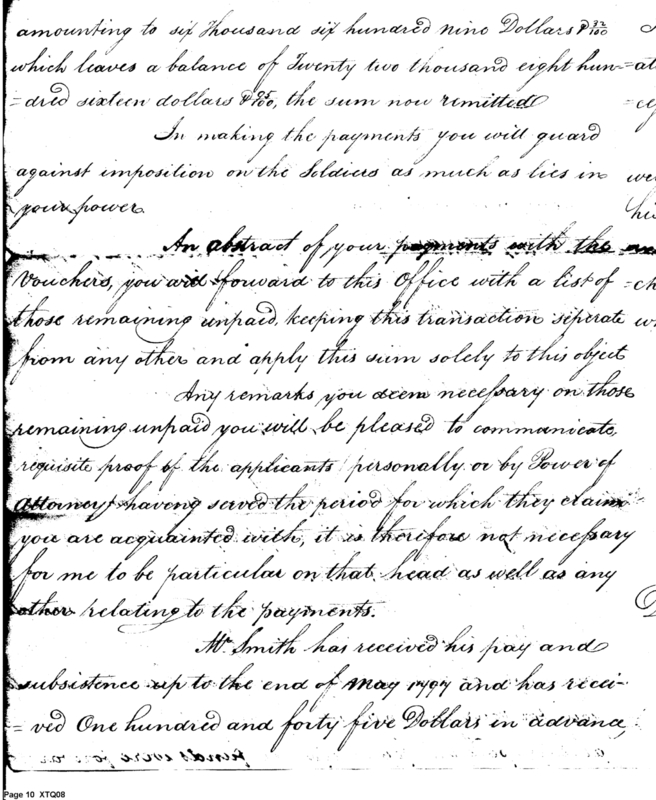 amounting to six Thousand six hundred nine Dollars & 32/100
which leaves a balance of Twenty two thousand eight hun=
=dred sixteen dollars & 95/100, the sum now remitted
In making the payments you will guard
against imposition on the Soldiers as much as lies in
your power.
An abstract of your payments with the
Vouchers, you will forward to this Office with a list of
those remaining unpaid, keeping this transaction seperate
from any other and apply this sum solely to this object
Any remarks you deem necessary on those
remaining unpaid you will be pleased to communicate,
requisite proof of the applicants personally or by Power of
Attorney having served the period for which they claim
you are acquainted with, it is therefore not necessary
for me to be particular on that head as well as any
other relating to the payments.
Mr. Smith has received his pay and
subsistence up to the end of May 1797 and has recei-
=ved One hundred and forty five Dollars in advance,
Page 10 XTQ08